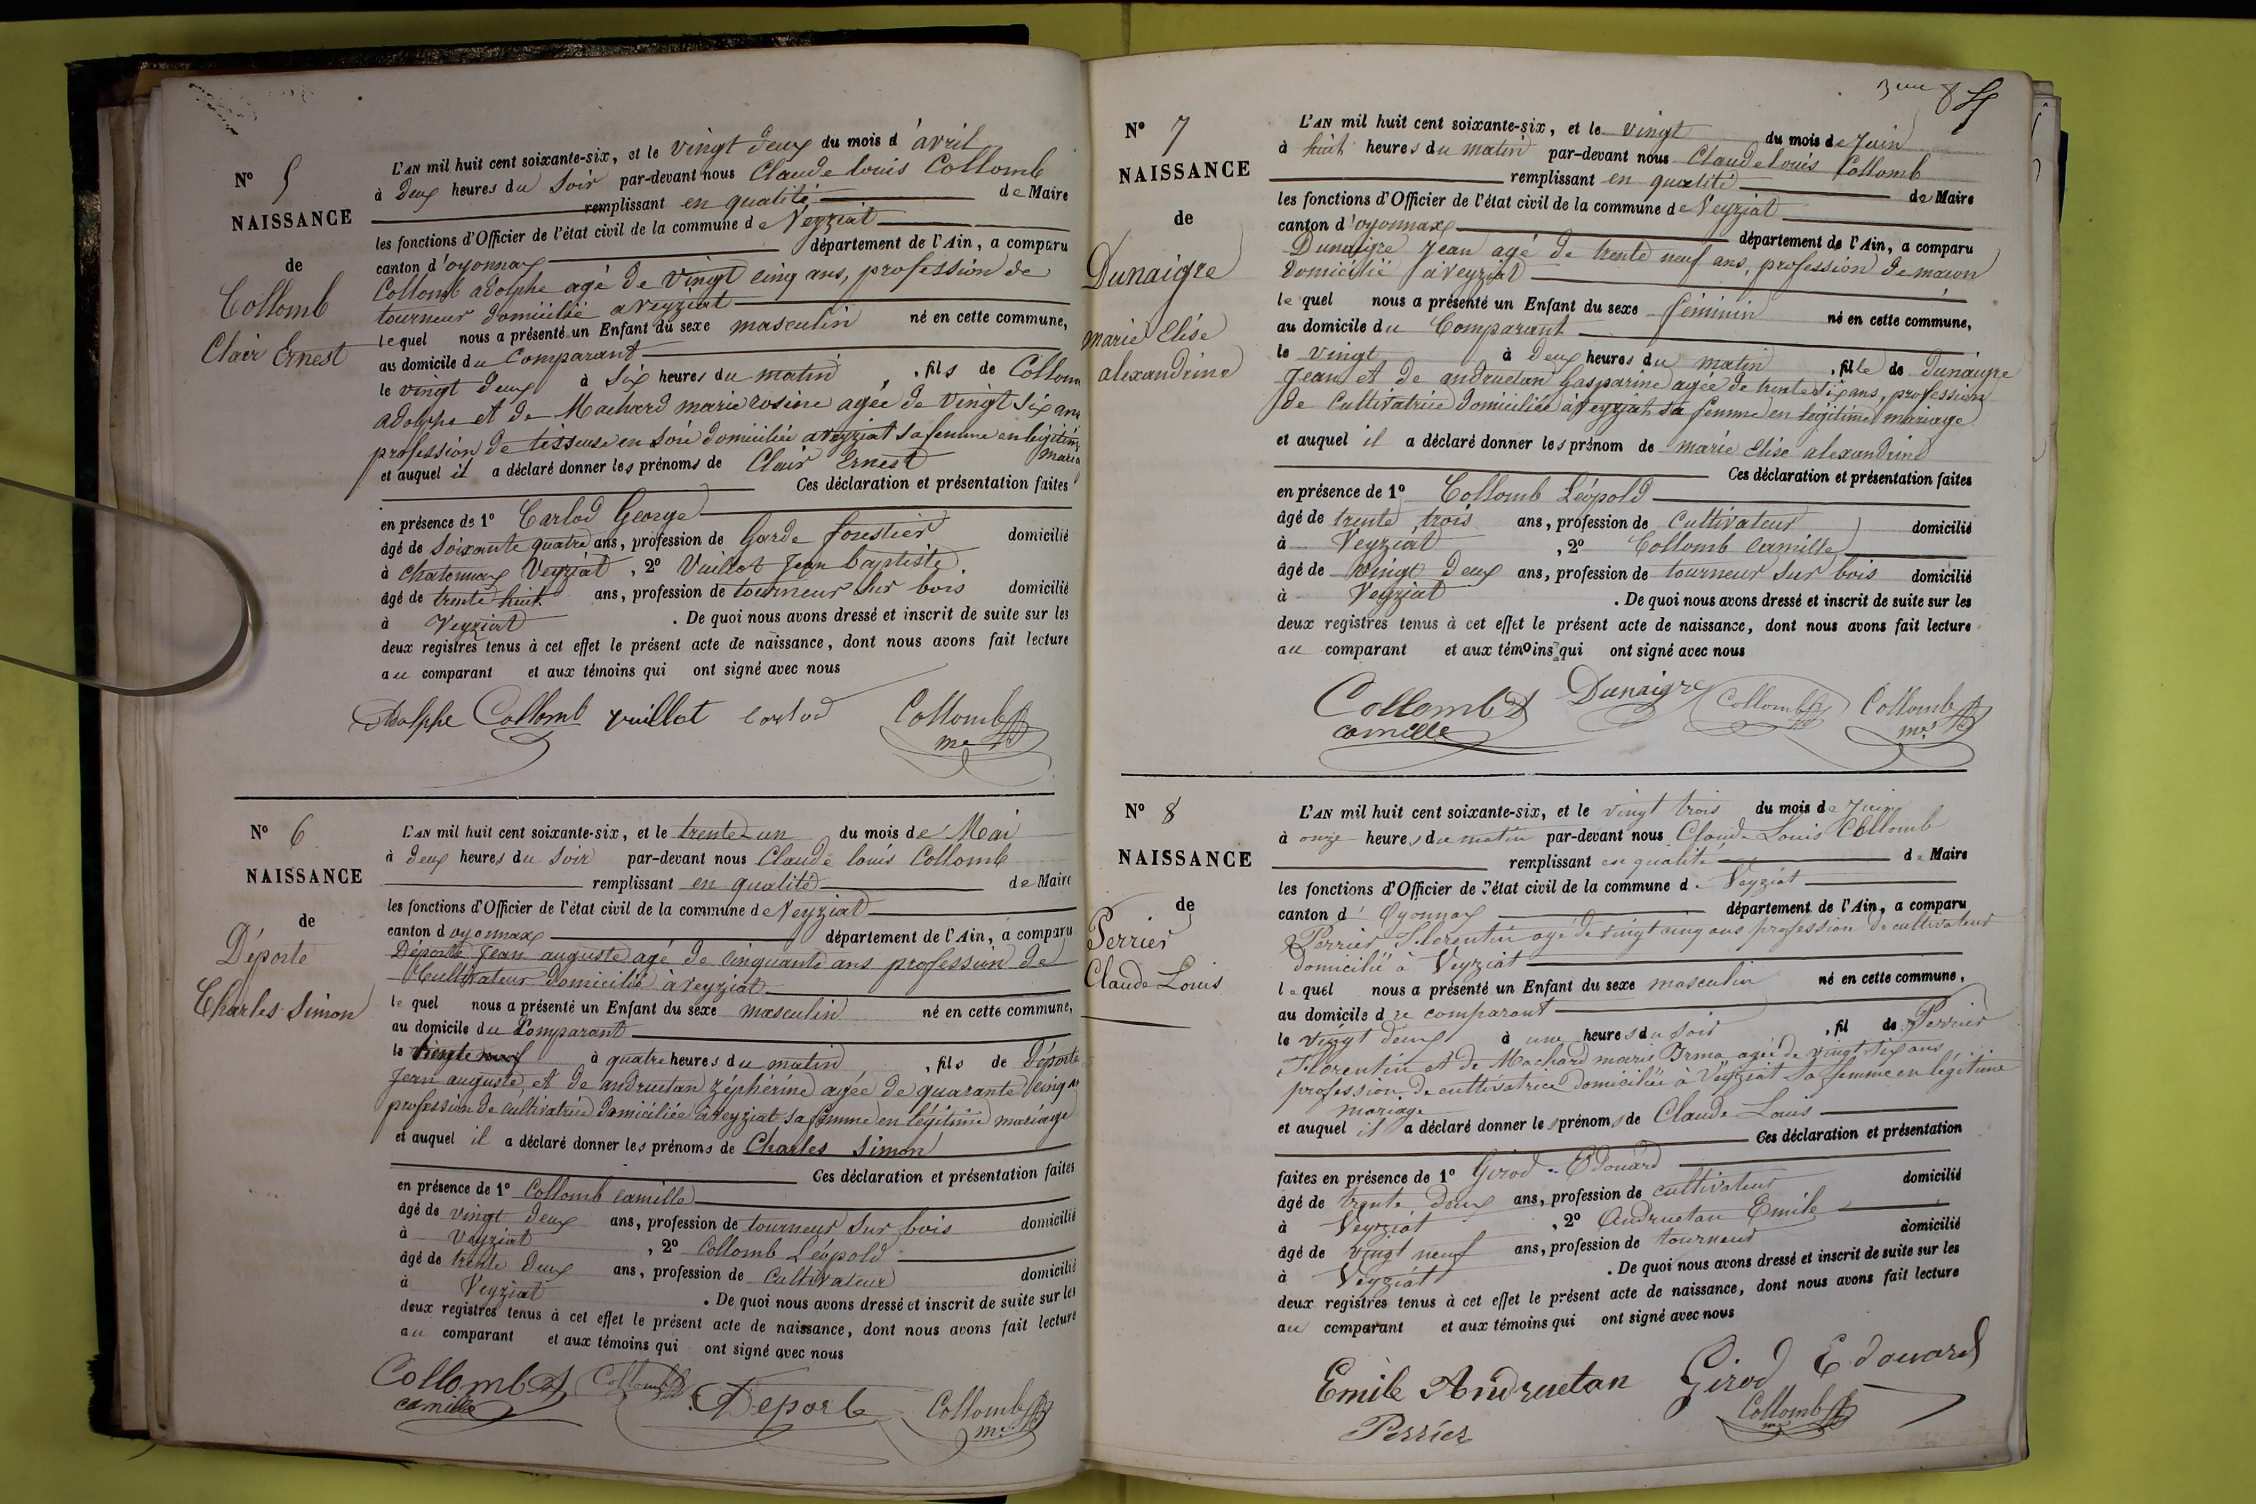 N° 5
NAISSANCE
de
Collomb
Clair Ernest
L'AN mil huit cent soixante-six, et le vingt deux du mois d'avril
à Deux heures du Soir par-devant nous Claude louis Collomb
remplissant en qualité de Maire
les fonctions d'Officier de l'état civil de la commune de Veyziat
canton d'oyonnax département de l'Ain, a comparu
Collomb adolphe agé de vingt cinq ans, profession de
tourneur domicilié a veyziat
lequel nous a présenté un Enfant du sexe masculin né en cette commune,
au domicile du Comparant
le vingt deux à Six heures du matin, fils de Collomb
adolphe et de Machard marie rosine agée de vingt Six ans
profession de tisseuse en Soie domiciliée a veyziat sa femme en légitime
mariage
et auquel il a déclaré donner les prénoms de Clair Ernest
Ces déclaration et présentation faites
en présence de 1° Carlod George
âgé de Soixante quatre ans, profession de Garde forestier domicilié
à chatonnax Veyziat, 2° Vuillot Jean Baptiste
âgé de trente huit ans, profession de tourneur Sur bois domicilié
à Veyziat. De quoi nous avons dressé et inscrit de suite sur les
deux registres tenus à cet effet le présent acte de naissance, dont nous avons fait lecture
au comparant et aux témoins qui ont signé avec nous
Adolphe Collomb vuillot carlod Collomb
me
N° 6
NAISSANCE
de
Déporte
Charles Simon
L'AN mil huit cent soixante-six, et le trente un du mois de Mai
à Deux heures du Soir par-devant nous Claude louis Collomb
remplissant en qualité de Maire
les fonctions d'Officier de l'état civil de la commune de Veyziat
canton d oyonnax département de l'Ain, a comparu
Déporte Jean auguste agé de cinquante ans profession de
Cultivateur domicilié à veyziat
lequel nous a présenté un Enfant du sexe masculin né en cette commune,
au domicile du Comparant
le à quatre heures du matin, fils de Déporte
Jean auguste, et de andruetan zéphérine agée de quarante cinq ans
profession de cultivatrice domiciliée à veyziat sa femme en légitime mariage
et auquel il a déclaré donner les prénoms de Charles Simon
Ces déclaration et présentation faites
en présence de 1° Collomb camille
âgé de vingt deux ans, profession de tourneur Sur bois domicilié
à Veyziat, 2° Collomb Léopold
âgé de trente deux ans, profession de Cultivateur domicilié
à Veyziat. De quoi nous avons dressé et inscrit de suite sur les
deux registres tenus à cet effet le présent acte de naissance, dont nous avons fait lecture
au comparant et aux témoins qui ont signé avec nous
Collomb Collomb Déporte Collomb
camille me
N° 7
NAISSANCE
de
Dunaigre
marie Elise
alexandrine
L'AN mil huit cent soixante-six, et le vingt du mois de Juin
à huit heures du matin par-devant nous Claude louis Collomb
remplissant en qualité de Maire
les fonctions d'Officier de l'état civil de la commune de Veyziat
canton d'oyonnax département de l'Ain, a comparu
Dunaigre Jean agé de trente neuf ans, profession de maçon
domicilié à veyziat
lequel nous a présenté un Enfant du sexe féminin né en cette commune,
au domicile du Comparant
le vingt à Deux heures du matin, fille de Dunaigre
Jean et de andruetan Gasparine agée de trente Six ans, profession
de Cultivatrice domiciliée à veyziat sa femme en légitime mariage
et auquel il a déclaré donner les prénom de marie Elise alexandrine
Ces déclaration et présentation faites
en présence de 1° Collomb Léopold
âgé de trente trois ans, profession de Cultivateur domicilié
à Veyziat, 2° Collomb Camille
âgé de vingt Deux ans, profession de tourneur Sur bois domicilié
à Veyziat. De quoi nous avons dressé et inscrit de suite sur les
deux registres tenus à cet effet le présent acte de naissance, dont nous avons fait lecture
au comparant et aux témoins qui ont signé avec nous
Collomb Dunaigre Collomb Collomb
camille me
N° 8
NAISSANCE
de
Perrier
Claude Louis
L'AN mil huit cent soixante-six, et le vingt trois du mois de Juin
à onze heures du matin par-devant nous Claude Louis Collomb
remplissant en qualité de Maire
les fonctions d'Officier de l'état civil de la commune de Veyziat
canton d'Oyonnax département de l'Ain, a comparu
Perrier Florentin agé de vingt cinq ans profession de cultivateur
domicilié à Veyziat
lequel nous a présenté un Enfant du sexe masculin né en cette commune,
au domicile d re comparant
le vingt deux à une heures du soir, fil de Perrier
Florentin et de Machard marie Irma agée de vingt six ans
profession de cultivatrice domiciliée à Veyziat sa femme en légitime
mariage
et auquel il a déclaré donner les prénoms de Claude Louis
Ces déclaration et présentation
faites en présence de 1° Girod Edouard
âgé de trente deux ans, profession de cultivateur domicilié
à Veyziat, 2° Andruetan Emile
âgé de vingt neuf ans, profession de tourneur domicilié
à Veyziat. De quoi nous avons dressé et inscrit de suite sur les
deux registres tenus à cet effet le présent acte de naissance, dont nous avons fait lecture
au comparant et aux témoins qui ont signé avec nous
Emile Andruetan Girod Edouard
Perrier Collomb
me